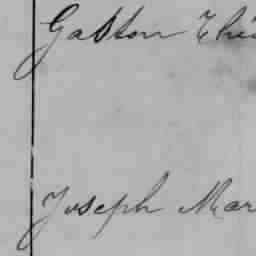 Gaston Thi
Joseph Mar